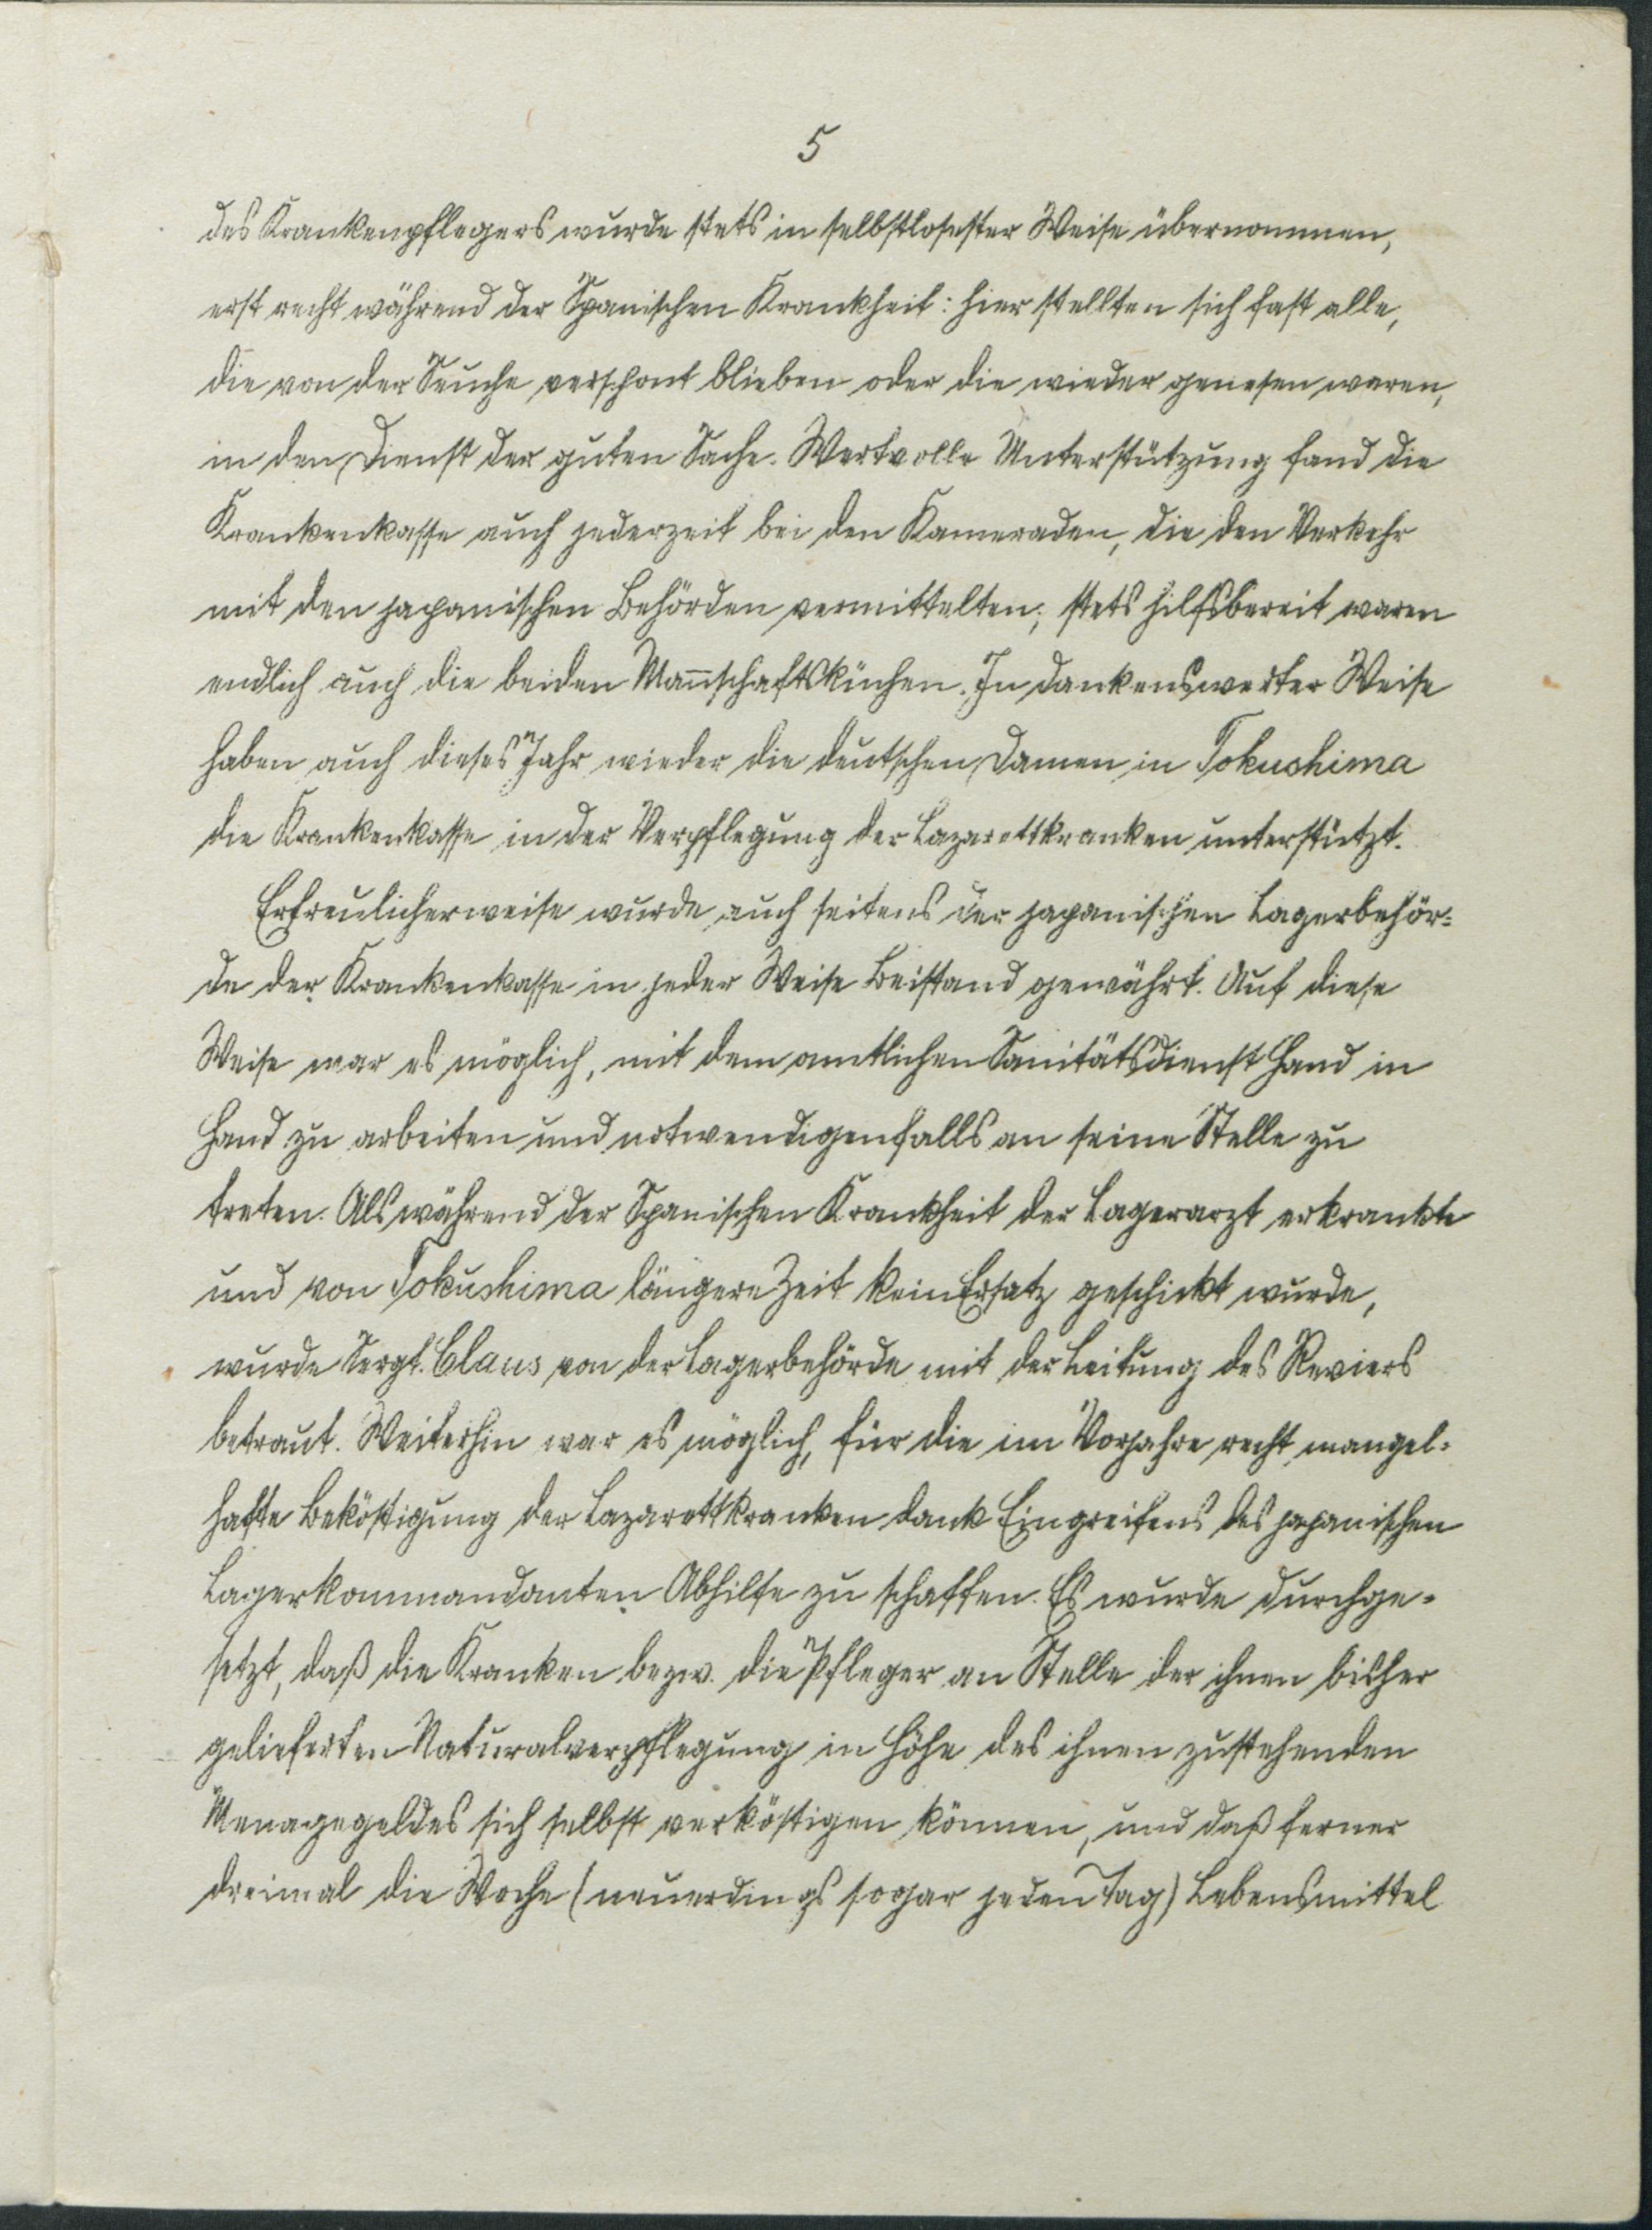 5
des Krankenpflegers wurde stets in selbstlosester Weise übernommen,
erst recht während der Spanischen Krankheit: hier stellten sich fast alle,
die von der Seuche verschont blieben oder die wieder genesen waren,
in den Dienst der guten Sache. Wertvolle Unterstützung fand die
Krankenkasse auch jederzeit bei den Kameraden, die den Verkehr
mit den japanischen Behörden vermittelten; stets hilfsbereit waren
endlich auch die beiden Mannschaftsküchen. In dankenswerter Weise
haben auch dieses Jahr wieder die deutschen Damen in Tokushima
die Krankenkasse in der Verpflegung der Lazarettkranken unterstützt.
Erfreulicherweise wurde auch seitens der japanischen Lagerbehör-
de der Krankenkasse in jeder Weise Beistand gewährt. Auf diese
Weise war es möglich, mit dem amtlichen Sanitätsdienst Hand in
Hand zu arbeiten und notwendigenfalls an seine Stelle zu
treten. Als während der Spanischen Krankheit der Lagerarzt erkrankte
und von Tokushima längere Zeit kein Ersatz geschickt wurde,
wurde Sergt. Claus von der Lagerbehörde mit der Leitung des Reviers
betraut. Weiterhin war es möglich, für die im Vorjahre recht mangel-
hafte Beköstigung der Lazarettkranken dank Eingreifens des japanischen
Lagerkommandanten Abhilfe zu schaffen. Es wurde durchge-
setzt, daß die Kranken bezw. die Pfleger an Stelle der ihnen bisher
gelieferten Naturalverpflegung in Höhe des ihnen zustehenden
Menagegeldes sich selbst verköstigen können, und daß ferner
dreimal die Woche (neuerdings sogar jeden Tag) Lebensmittel